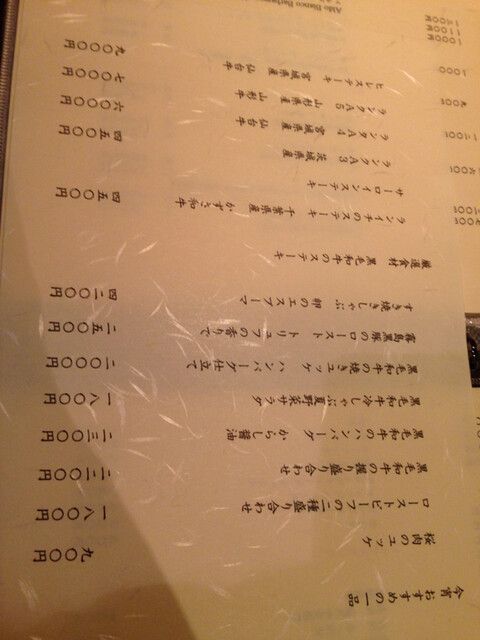 今宵おすすめの一品
桜肉のユッケ 九〇〇円
ローストビーフの二種盛り合わせ 一八〇〇円
黒毛和牛の握り盛り合わせ 二二〇〇円
黒毛和牛のハンバーグ からし醤油 二三〇〇円
黒毛和牛冷しゃぶ夏野菜サラダ 一八〇〇円
黒毛和牛の焼きユッケ ハンバーグ仕立て 二〇〇〇円
霧島黒豚のロースト トリュフの香りで 二五〇〇円
すき焼きしゃぶ 卵のエスプーマ 四二〇〇円
厳選食材 黒毛和牛のステーキ
ランイチのステーキ 千葉県産 かずさ和牛 四五〇〇円
サーロインステーキ
ランクA3 茨城県産 四五〇〇円
ランクA4 宮城県産 仙台牛 六〇〇〇円
ランクA5 山形県産 山形牛 七〇〇〇円
ヒレステーキ 宮城県産 仙台牛 九〇〇〇円